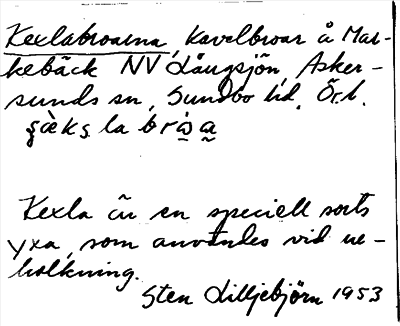 Kexlabroarna, kavelbroar å Mar-
kebäck NV Långsjön, Asker-
sunds sn, Sundbo hd, Ör.l.
Kexla är en speciell sorts
yxa, som användes vid ur-
holkning.
Sten Lilljebjörn 1953